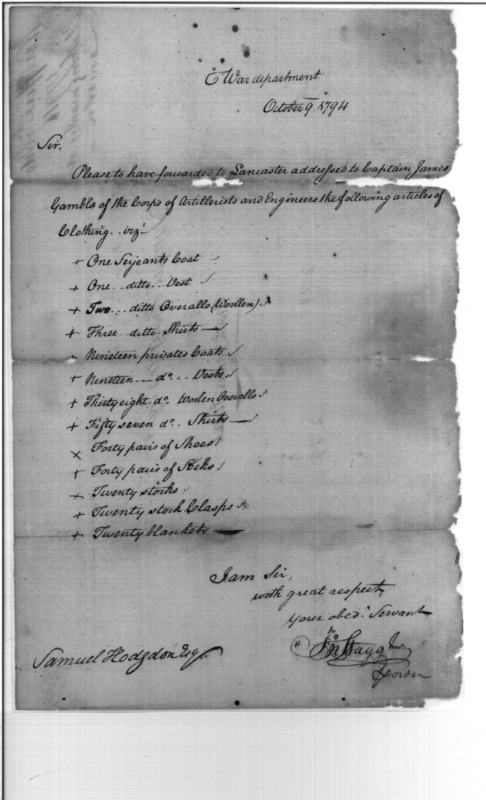 War department
October 9. 1794
Sir,
Please to have forwarded to Lancaster addressed to Captain James
Gamble of the Corps of Artillerists and Engineers the following articles of
Clothing.. viz!
+ One Serjeants Coat
+ One .. ditto .. Vest
+ Two ... ditto Overalls (Woolen)
+ Three .. ditto. Shirts
- Nineteen privates Coats
+ Nineteen --- do ... Vests
+ Thirty eight. do. Woolen Overalls
+ Fifty seven do .. Shirts
x Forty pairs of Shoes
+ Forty pairs of Socks
+ Twenty stocks
+ Twenty stock Clasps
+ Twenty blankets
I am Sir,
with great respect
your obed.t Servant
Jno Stagg Junr
Samuel Hodgdon Esq.